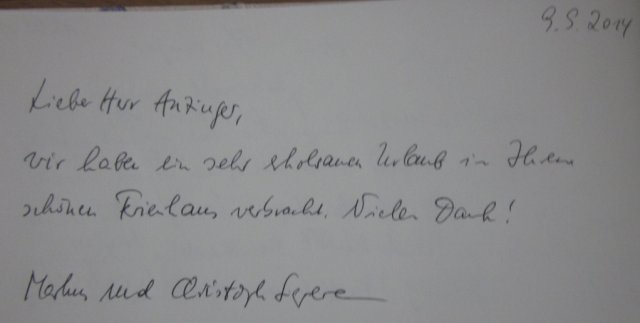 9.5.2014
Lieber Herr Anzinger,
wir haben ein sehr erholsamen Urlaub in Ihrem
schönen Ferienhaus verbracht. Vielen Dank!
Markus und Christoph